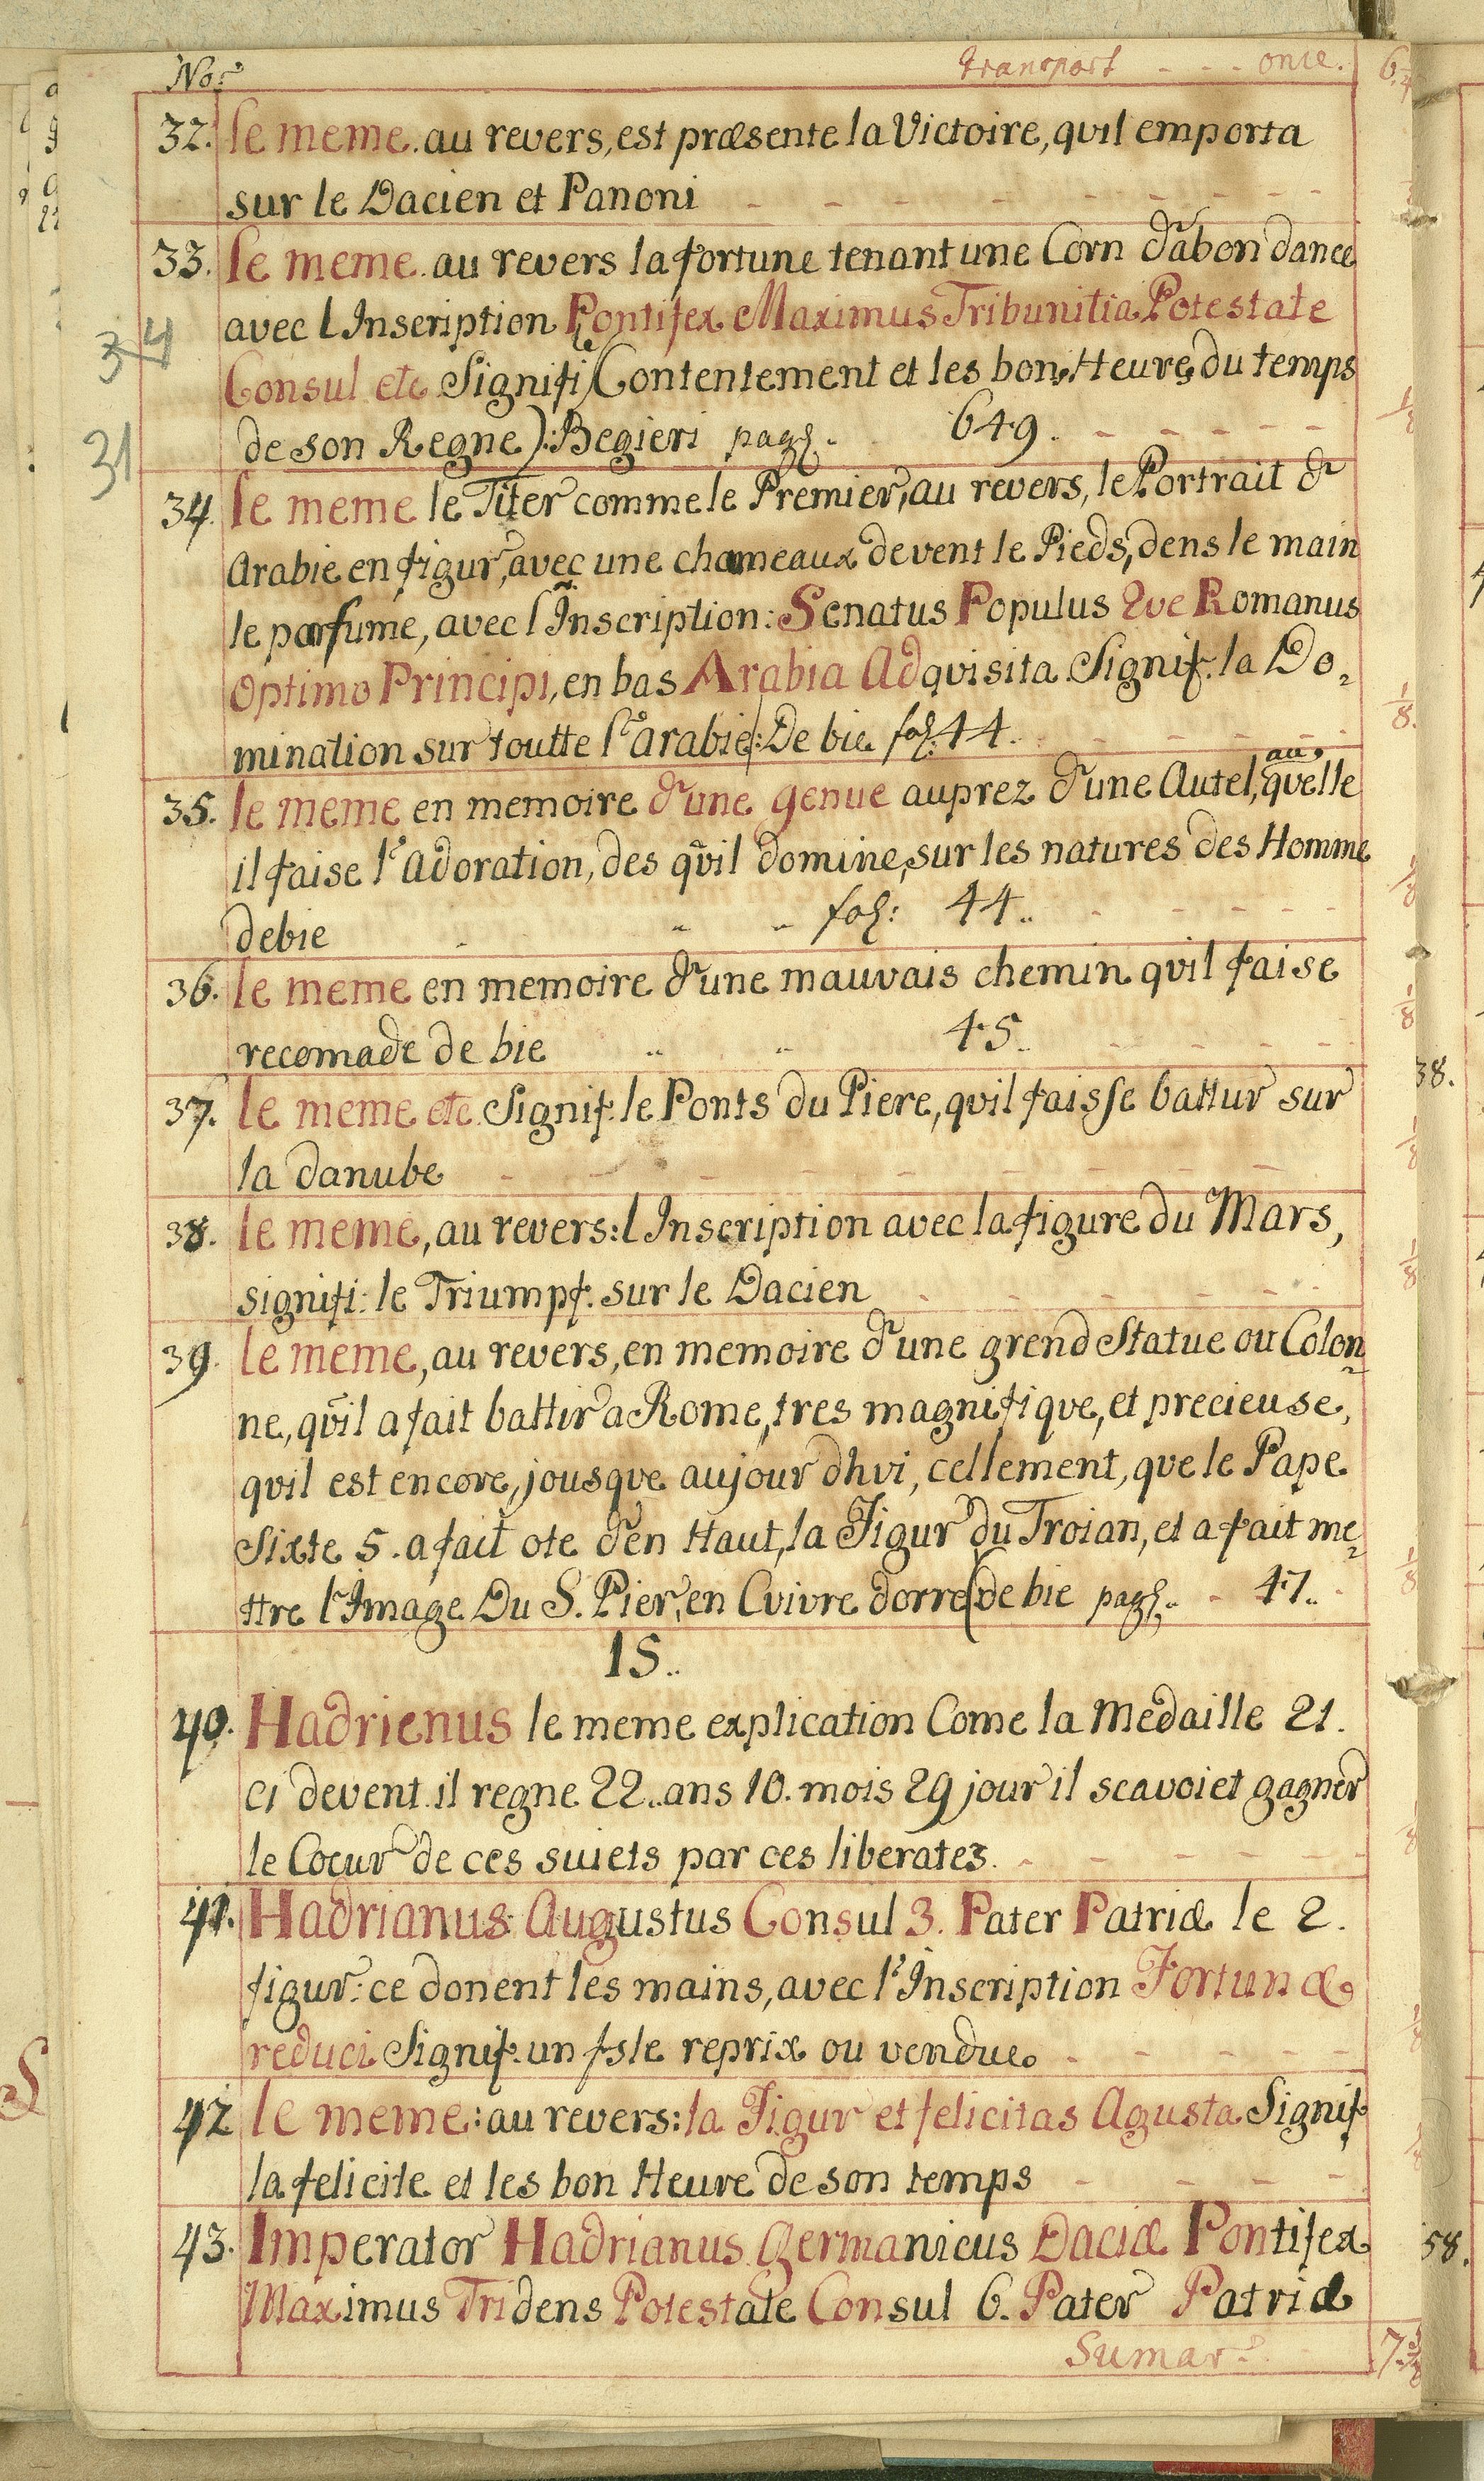 No: transport - - - once. 6
32. le meme. au revers, est præsente la Victoire, qvil emporta
sur le Dacien et Panoni
33. le meme. au revers la fortune tenant une Corn d'abondance
avec l Inscription Pontifex Maximus Tribunitia Potestate
34
Consul etc Signifi le Contentement et les bon Heure du temps
de son Regne): Begieri pag. 649.
31
34. le meme le Titer comme le Premier, au revers, le Portrait d'
Arabie en figur, avec une chameaux devent le Pieds, dens le main
le parfume, avec l'Inscription: Senatus Populus Qve Romanus
Optimo Principi, en bas Arabia Adqvisita Signif. la Do,
mination sur toutte l'arabie: De bie fol: 44.
au
35. le meme en memoire d'une genue auprez d'une Autel, qvelle
il faise l'adoration, des qvil domine, sur les natures des Homme
debie fol: 44..
36. le meme en memoire d'une mauvais chemin qvil faise
recomade de bie 45..
37. le meme etc. Signif. le Ponts du Piere, qvil faisse battur sur
la danube
38. le meme, au revers: l Inscription avec la figure du Mars,
signifi: le Triumpf. sur le Dacien
39. le meme, au revers, en memoire d'une grend Statue ou Colon
ne, qvil a fait battir a Rome, tres magnifiqve, et precieuse,
qvil est encore, jousqve aujour dhvi, cellement, qve le Pape
Sixte 5. a fait ote d'en Haut, la Figur du Troian, et a fait me
ttre l'Image Du S. Pier, en Cvivre dorre (de bie pag. 47..
15..
40. Hadrienus le meme explication Come la medaille 21.
ci devent. il regne 22.. ans 10. mois 29 jour il scavoiet gagner
le Coeur de ces suiets par ces liberates.
41. Hadrianus Augustus Consul 3. Pater Patriæ le 2.
figur: ce donent les mains, avec l'Inscription Fortunæ
reduci Signif. un fsle reprix ou vendue.
42 le meme: au revers: la Figur et felicitas Agusta Signif
la felicite et les bon Heure de son temps
43. Imperator Hadrianus Germanicus Daciæ Pontifex
Maximus Tridens Potestate Consul 6. Pater Patriæ
Sumar
38.
58.